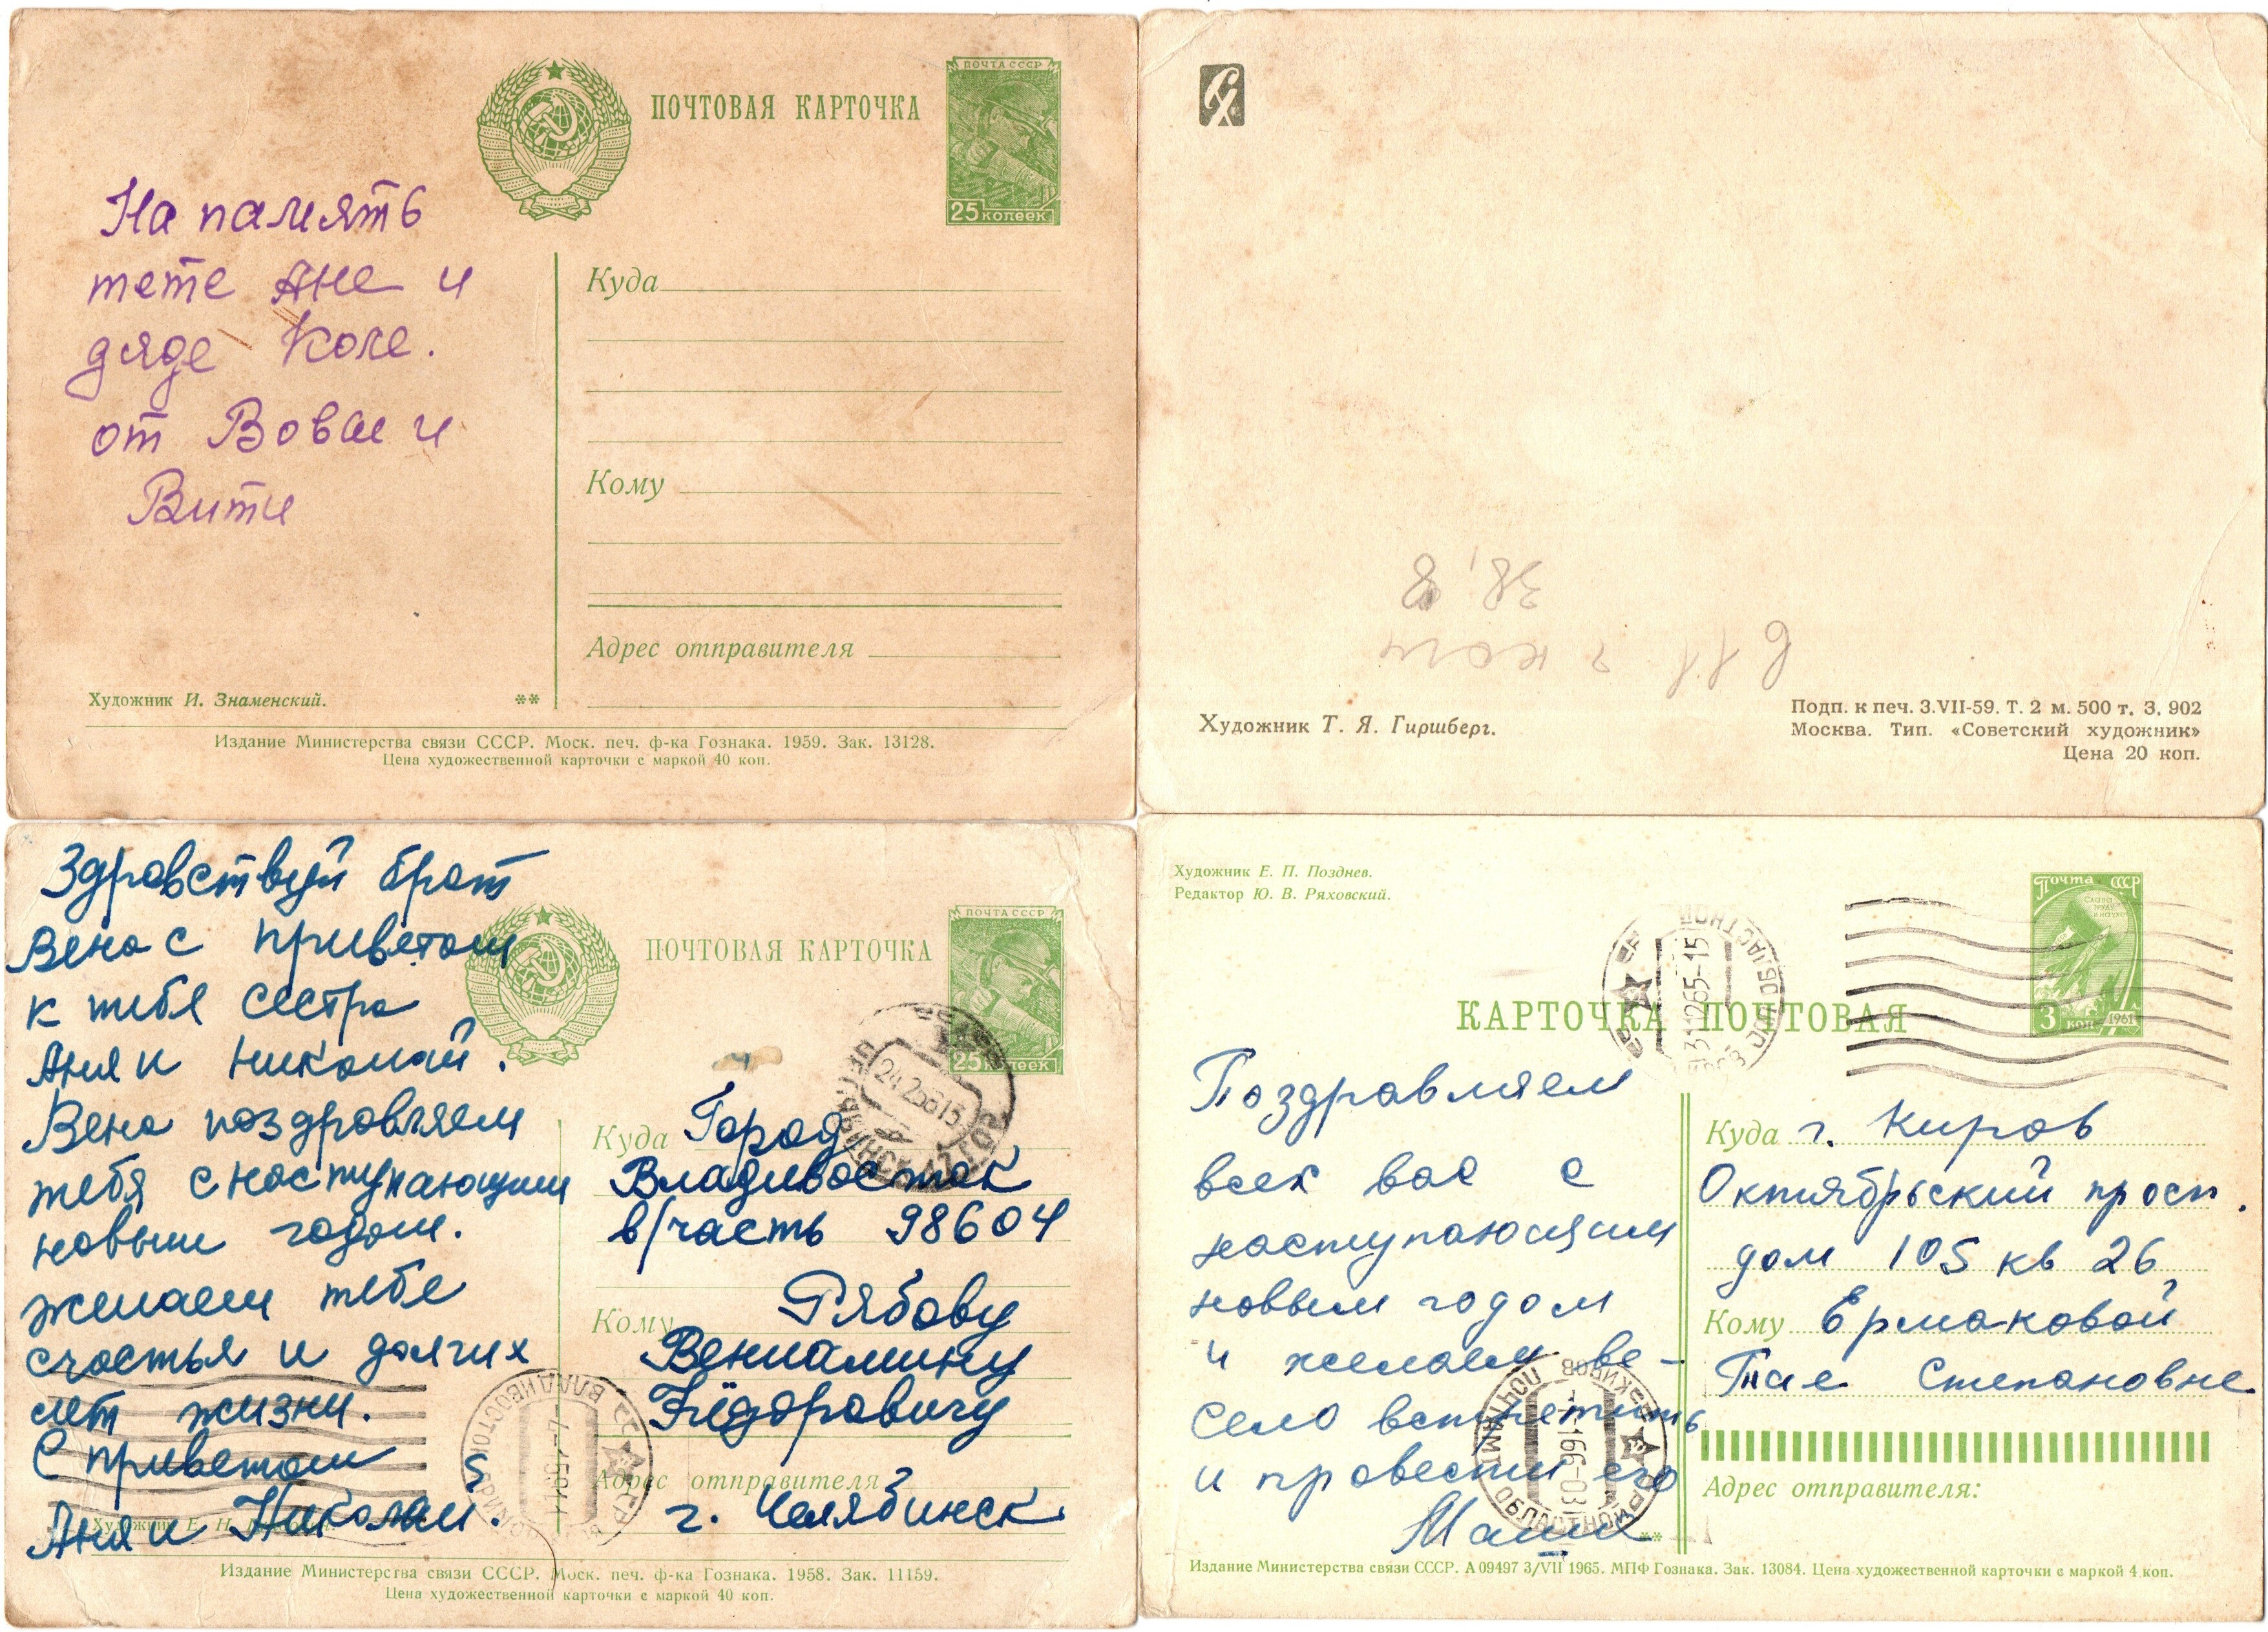 ПОЧТОВАЯ КАРТОЧКА
ПОЧТА СССР
25 копеек
На память
тете Ане и
дяде Коле.
от Вовы и
Вити
Куда
Кому
Адрес отправителя
Художник И. Знаменский.
**
Издание Министерства связи СССР. Моск. печ. ф-ка Гознака. 1959. Зак. 13128.
Цена художественной карточки с маркой 40 коп.
38,8
Художник Т. Я. Гиршберг.
Подп. к печ. 3.VII-59. Т. 2 м. 500 т. З. 902
Москва. Тип. «Советский художник»
Цена 20 коп.
Здравствуй брат
Вена с приветом
к тебя сестра
Аня и Николай.
Вена поздровляем
тебя с наступающим
новым годом.
желаем тебе
счастья и долгих
лет жизни.
С приветом
Аня и Николай.
ПОЧТОВАЯ КАРТОЧКА
ПОЧТА СССР
25 копеек
Куда Город
Владивосток
в/часть 98604
Кому Рябову
Вениамину
Фёдоровичу
Адрес отправителя
г. Челябинск
ВЛАДИВОСТОК
Художник Е. Н.
Издание Министерства связи СССР. Моск. печ. ф-ка Гознака. 1958. Зак. 11159.
Цена художественной карточки с маркой 40 коп.
Художник Е. П. Позднев.
Редактор Ю. В. Ряховский.
Почта СССР
3 коп 1961
311265-15
КАРТОЧКА ПОЧТОВАЯ
Поздравляем
всех вас с
наступающим
новым годом
и желаем ве-
село встретить
и провести его
Маши
Куда г. Киров
Октябрьский просп.
дом 105 кв 26
Кому Ермаковой
Тае Степановне
Адрес отправителя:
**
Издание Министерства связи СССР. А 09497 3/VII 1965. МПФ Гознака. Зак. 13084. Цена художественной карточки с маркой 4 коп.